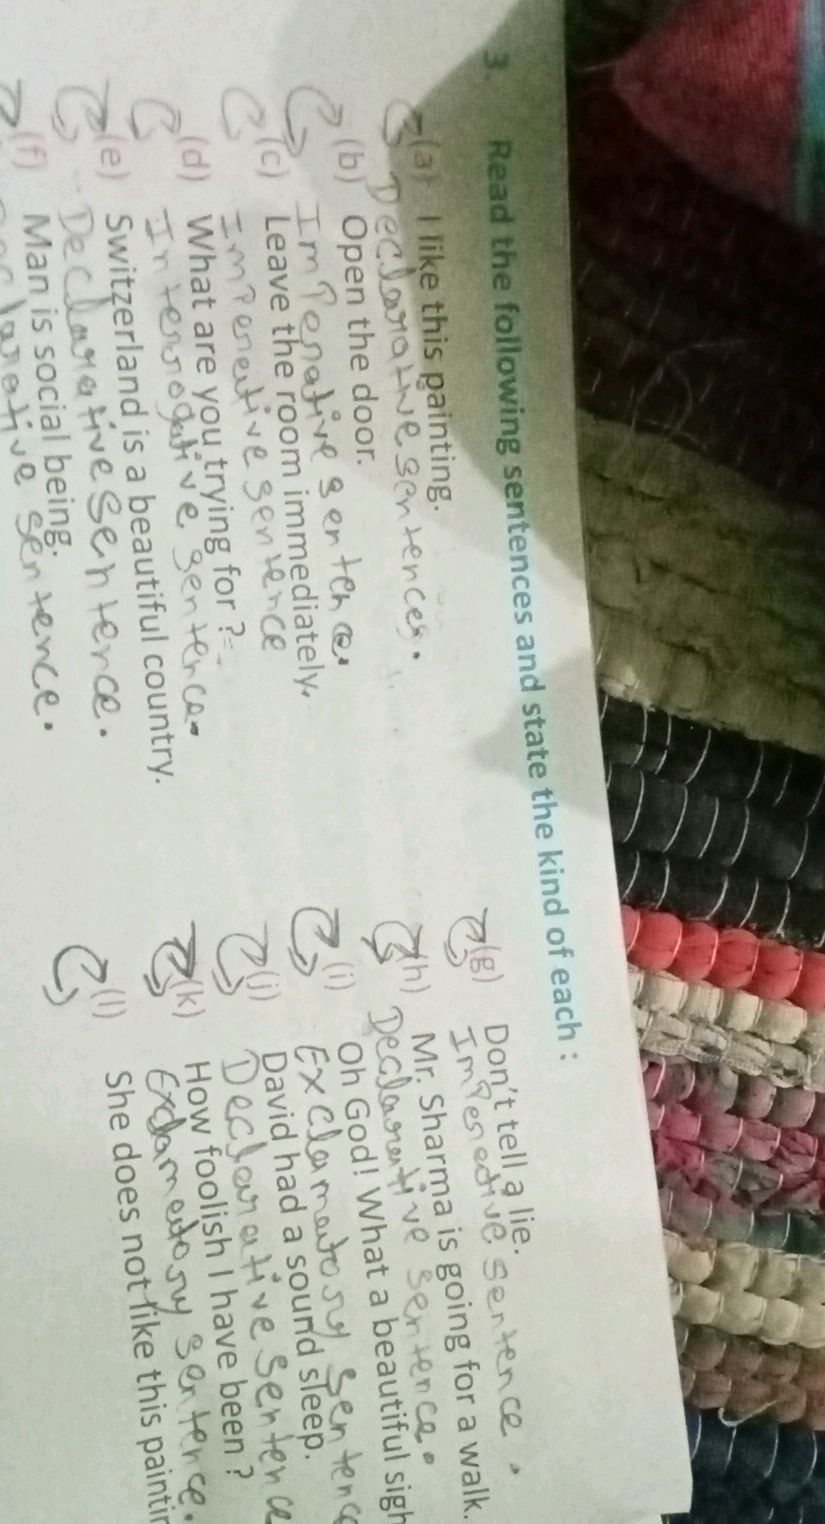 3. Read the following sentences and state the kind of each :
(a) I like this painting.
Declarative sentences.
(b) Open the door.
Imperative sentence.
(c) Leave the room immediately.
Imperative sentence
(d) What are you trying for ?
Interrogative sentence.
(e) Switzerland is a beautiful country.
Declarative sentence.
(f) Man is social being.
Declarative sentence.
(g) Don't tell a lie.
Imperative sentence.
(h) Mr. Sharma is going for a walk.
Declarative sentence.
(i) Oh God! What a beautiful sigh
Exclamatory sentence
(j) David had a sound sleep.
Declarative sentence
(k) How foolish I have been ?
Exclamatory sentence.
(l) She does not like this paintin